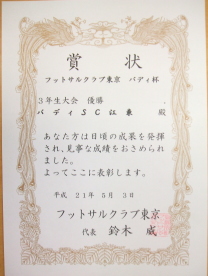 賞状
フットサルクラブ東京 バディ杯
3年生大会 優勝
バディSC江東 殿
あなた方は日頃の成果を発揮
され、見事な成績をおさめられ
ました。
よってここに表彰します。
平成21年5月3日
フットサルクラブ東京
代表 鈴木 威